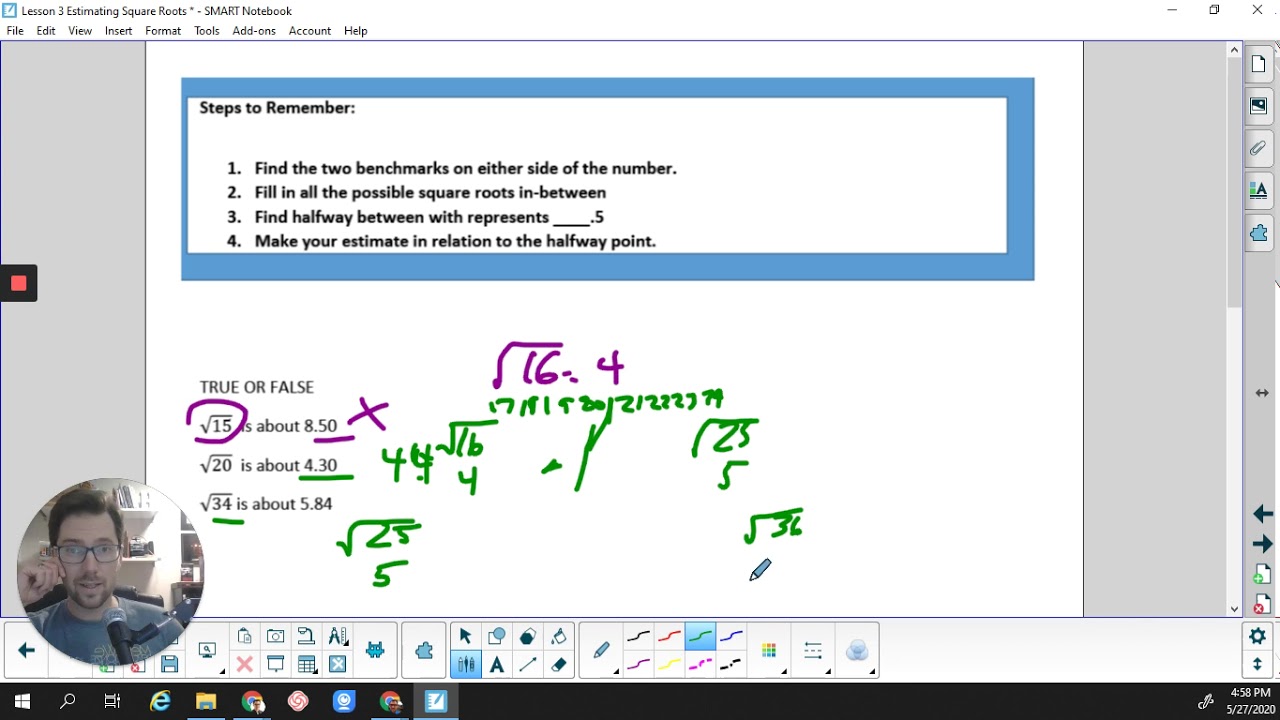 Lesson 3 Estimating Square Roots * - SMART Notebook
File Edit View Insert Format Tools Add-ons Account Help
Steps to Remember:
1. Find the two benchmarks on either side of the number.
2. Fill in all the possible square roots in-between
3. Find halfway between with represents ____.5
4. Make your estimate in relation to the halfway point.
√16 = 4
TRUE OR FALSE
17 18 19 20 21 22 23 24
√15 is about 8.50 X
√16
√25
√20 is about 4.30
4
5
√34 is about 5.84
√25
√36
5
4:58 PM
5/27/2020